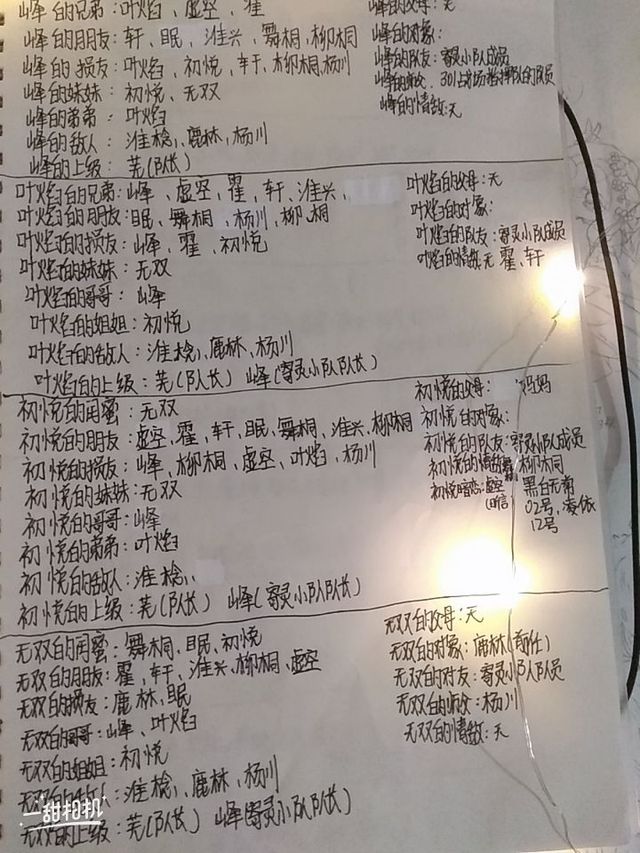 峰的兄弟：叶焰、虚空、霍
峰的父母：无
峰的朋友：轩、眠、淮兴、舞桐、柳桐
峰的对象：
峰的损友：叶焰、初悦、轩、柳桐、杨川
峰的队友：寄灵小队成员
峰的妹妹：初悦、无双
峰的弟弟：叶焰
峰的情敌：无
峰的敌人：淮棯、鹿林、杨川
峰的上级：芜(队长)
叶焰的兄弟：峰、虚空、霍、轩、淮兴、
叶焰的父母：无
叶焰的朋友：眠、舞桐、杨川、柳、桐
叶焰的对象：
叶焰的损友：峰、霍、初悦
叶焰的队友：寄灵小队成员
叶焰的妹妹：无双
叶焰的情敌：无 霍、轩
叶焰的哥哥：峰
叶焰的姐姐：初悦
叶焰的敌人：淮棯、鹿林、杨川
叶焰的上级：芜(队长) 峰(寄灵小队队长)
初悦的闺蜜：无双
初悦的父母： 妈妈
初悦的朋友：虚空、霍、轩、眠、舞桐、淮兴、柳桐
初悦的对象：
初悦的损友：峰、柳桐、虚空、叶焰、杨川
初悦的队友：寄灵小队成员
初悦的妹妹：无双
初悦的情敌： 柳桐
初悦的哥哥：峰
初悦暗恋：虚空
黑白无常
初悦的弟弟：叶焰
02号，凌依
初悦的敌人：淮棯、
12号
初悦的上级：芜(队长) 峰(寄灵小队队长)
无双的闺蜜：舞桐、眠、初悦
无双的父母：无
无双的朋友：霍、轩、淮兴、柳桐、虚空
无双的对象：鹿林(前任)
无双的损友：鹿林、眠
无双的队友：寄灵小队队员
无双的哥哥：峰、叶焰
无双的师父：杨川
无双的姐姐：初悦
无双的情敌：无
无双的敌人：淮棯、鹿林、杨川
无双的上级：芜(队长) 峰(寄灵小队队长)
一甜相机